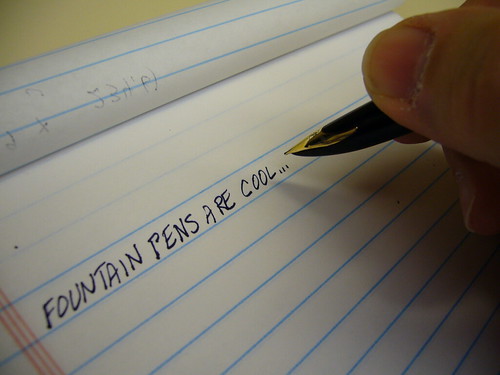 FOUNTAIN PENS ARE COOL...